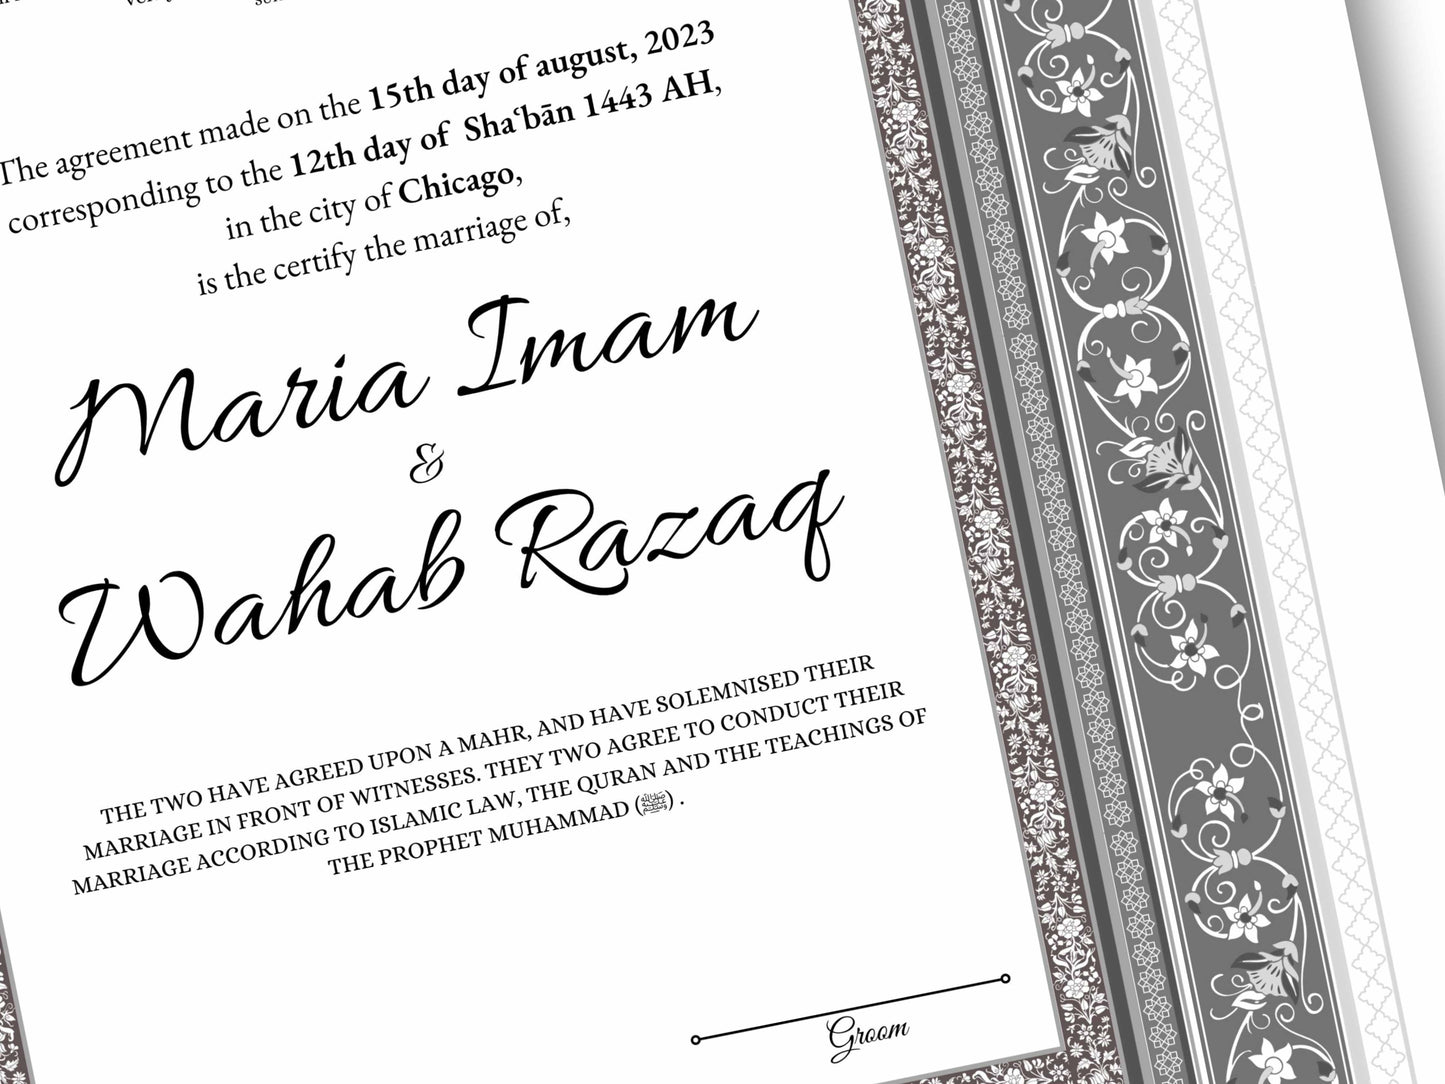 The agreement made on the 15th day of august, 2023
corresponding to the 12th day of Shaʿbān 1443 AH,
in the city of Chicago,
is the certify the marriage of,
Maria Imam
&
Wahab Razaq
THE TWO HAVE AGREED UPON A MAHR, AND HAVE SOLEMNISED THEIR
MARRIAGE IN FRONT OF WITNESSES. THEY TWO AGREE TO CONDUCT THEIR
MARRIAGE ACCORDING TO ISLAMIC LAW, THE QURAN AND THE TEACHINGS OF
THE PROPHET MUHAMMAD (ﷺ) .
Groom